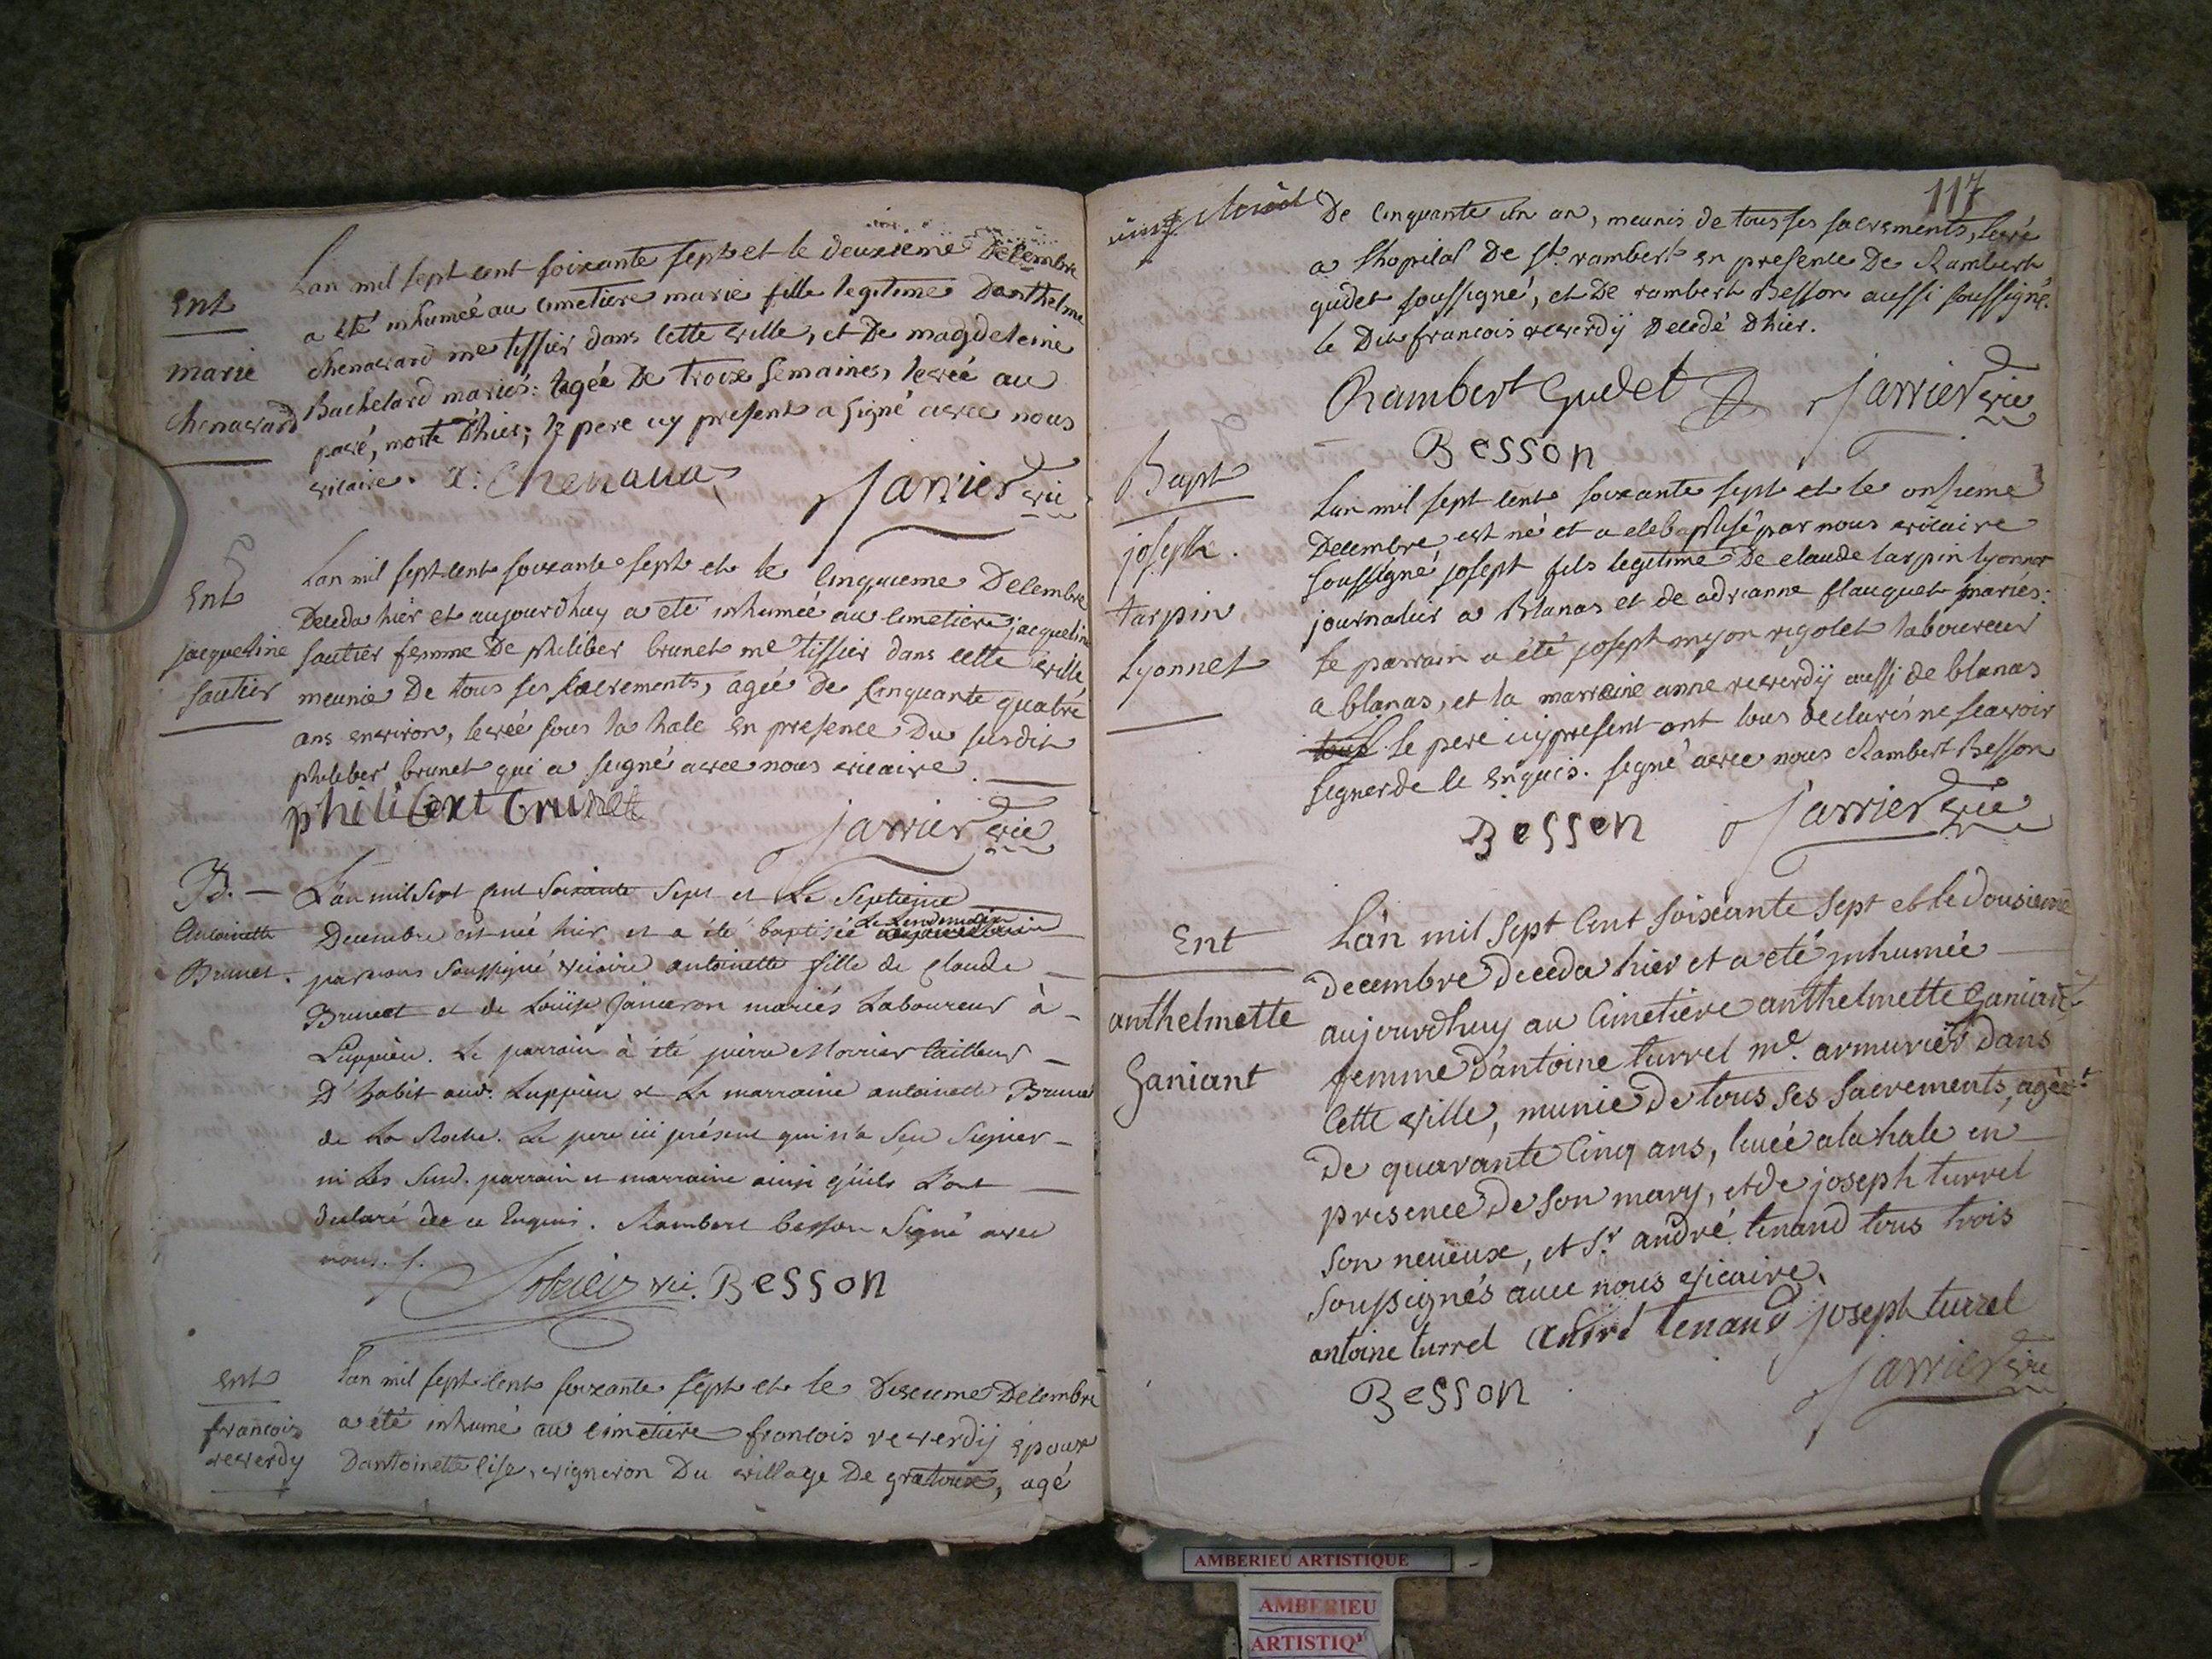 Ent
marie
chenavard
Lan mil sept cent soixante sept et le deuxieme Decembre
a été inhumée au cimetiere marie fille legitime Danthelme
chenavard me tissier dans cette ville, et De magdeleine
Bachelard mariés: agée De troix semaines, levée au
pavé, morte d'hier; le pere icy present a signé avec nous
vicaire. a: Chenava
Jarrier vic
Ent
jacqueline
sautier
Lan mil sept cent soixante sept et le cinquieme Decembre
Deceda hier et aujourdhuy a été inhumée au cimetiere jacqueline
sautier femme De philiber brunet me tissier dans cette ville
meunie De tous ses sacrements, agée de cinquante quatre
ans environ, levée sous la hale en presence Du susdit
philiber brunet qui a signé avec nous vicaire.
philibert brunet
Jarrier vic
Bd.
Antoinette
Brunet.
L'an mil Sept Cent Soixante Sept et Le Septieme
Decembre est née hier et a été baptisée Le Lendemain
par nous Soussigné vicaire antoinette fille de Claude
Brunet et de Louïse Janceron mariés Laboureur à
Luppieu. Le parrain à été pierre Morrier tailleur
D'habit aud. Luppieu et La marraine antoinette Brunet
de La Roche. Le pere ici présent qui n'a Seu Signer
ni Les Susd. parrain et marraine ainsi qu'ils L'ont
declaré de ce Enquis. Rambert besson Signé avec
nous. /.
vic. Besson
Ent
francois
reverdy
Lan mil sept cent soixante sept et le Dixieme Decembre
a été inhumé au cimetiere francois reverdij epoux
Dantoinette lise, vigneron Du village De gratoux, agé
117
De cinquante un an, meunis de tous ses sacrements, levé
a lhopital De st rambert en presence De Rambert
gudet soussigné, et De rambert Besson aussi soussigné.
le Dit francois reverdij Decedé Dhier.
Rambert Gudet
Jarrier vic
Besson
Bapt
joseph.
tarpin
Lyonnet
Lan mil sept cent soixante sept et le onsieme
Decembre est né et a eté baptisé par nous vicaire
soussigné josept fils legitime De claude tarpin lyonnet
journalier a Blanas et de adrianne flauquet mariés:
le parrain a été joseph myon rigolet laboureur
a blanas, et la marraine anne reverdij aussi de blanas
tous le pere icy present ont tous declarés ne scavoir
signer de le enquis. signé avec nous Rambert Besson
Besson
Jarrier vic
Ent
anthelmette
Ganiant
Lan mil Sept Cent Soixante Sept et le dousieme
decembre deceda hier et a eté jnhumée
aujourdhuy au Cimetiere anthelmette Ganiant
femme d'antoine turrel me. armurier dans
Cette ville, munie de tous ses Sacrements, agée
De quarante Cinq ans, levée a la hale en
presence de Son mary, et de joseph turrel
Son neueux, et Sr. andré tenand tous trois
Soussignés avec nous vicaire.
antoine turrel andré tenand joseph turrel
Besson
Jarrier vic
AMBERIEU ARTISTIQUE
AMBERIEU
ARTISTIQ